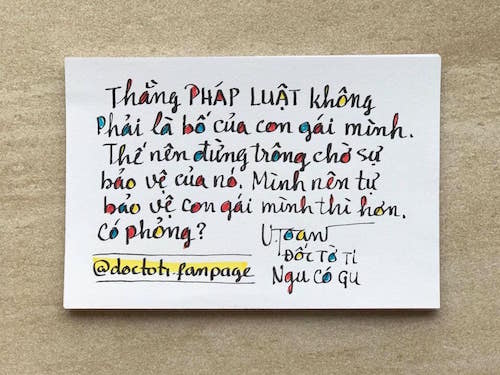 Thằng PHÁP LUẬT không
Phải là bố của con gái mình.
Thế nên đừng trông chờ sự
bảo vệ của nó. Mình nên tự
bảo vệ con gái mình thì hơn.
Có phỏng?
U.Toan
ĐỐC TỜ TI
NGU CÓ GU
@doctoti.fanpage